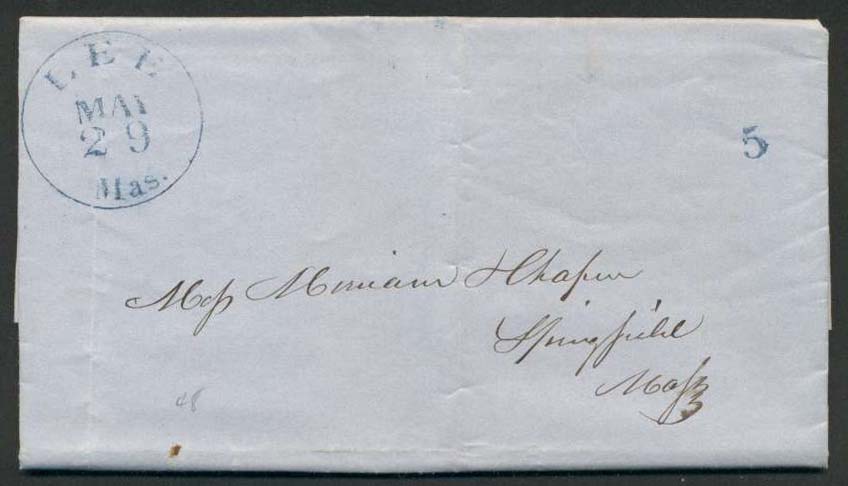 LEE
MAY
29
Mas.
5
Mess Merriam & Chapin
Springfield
Mass
48